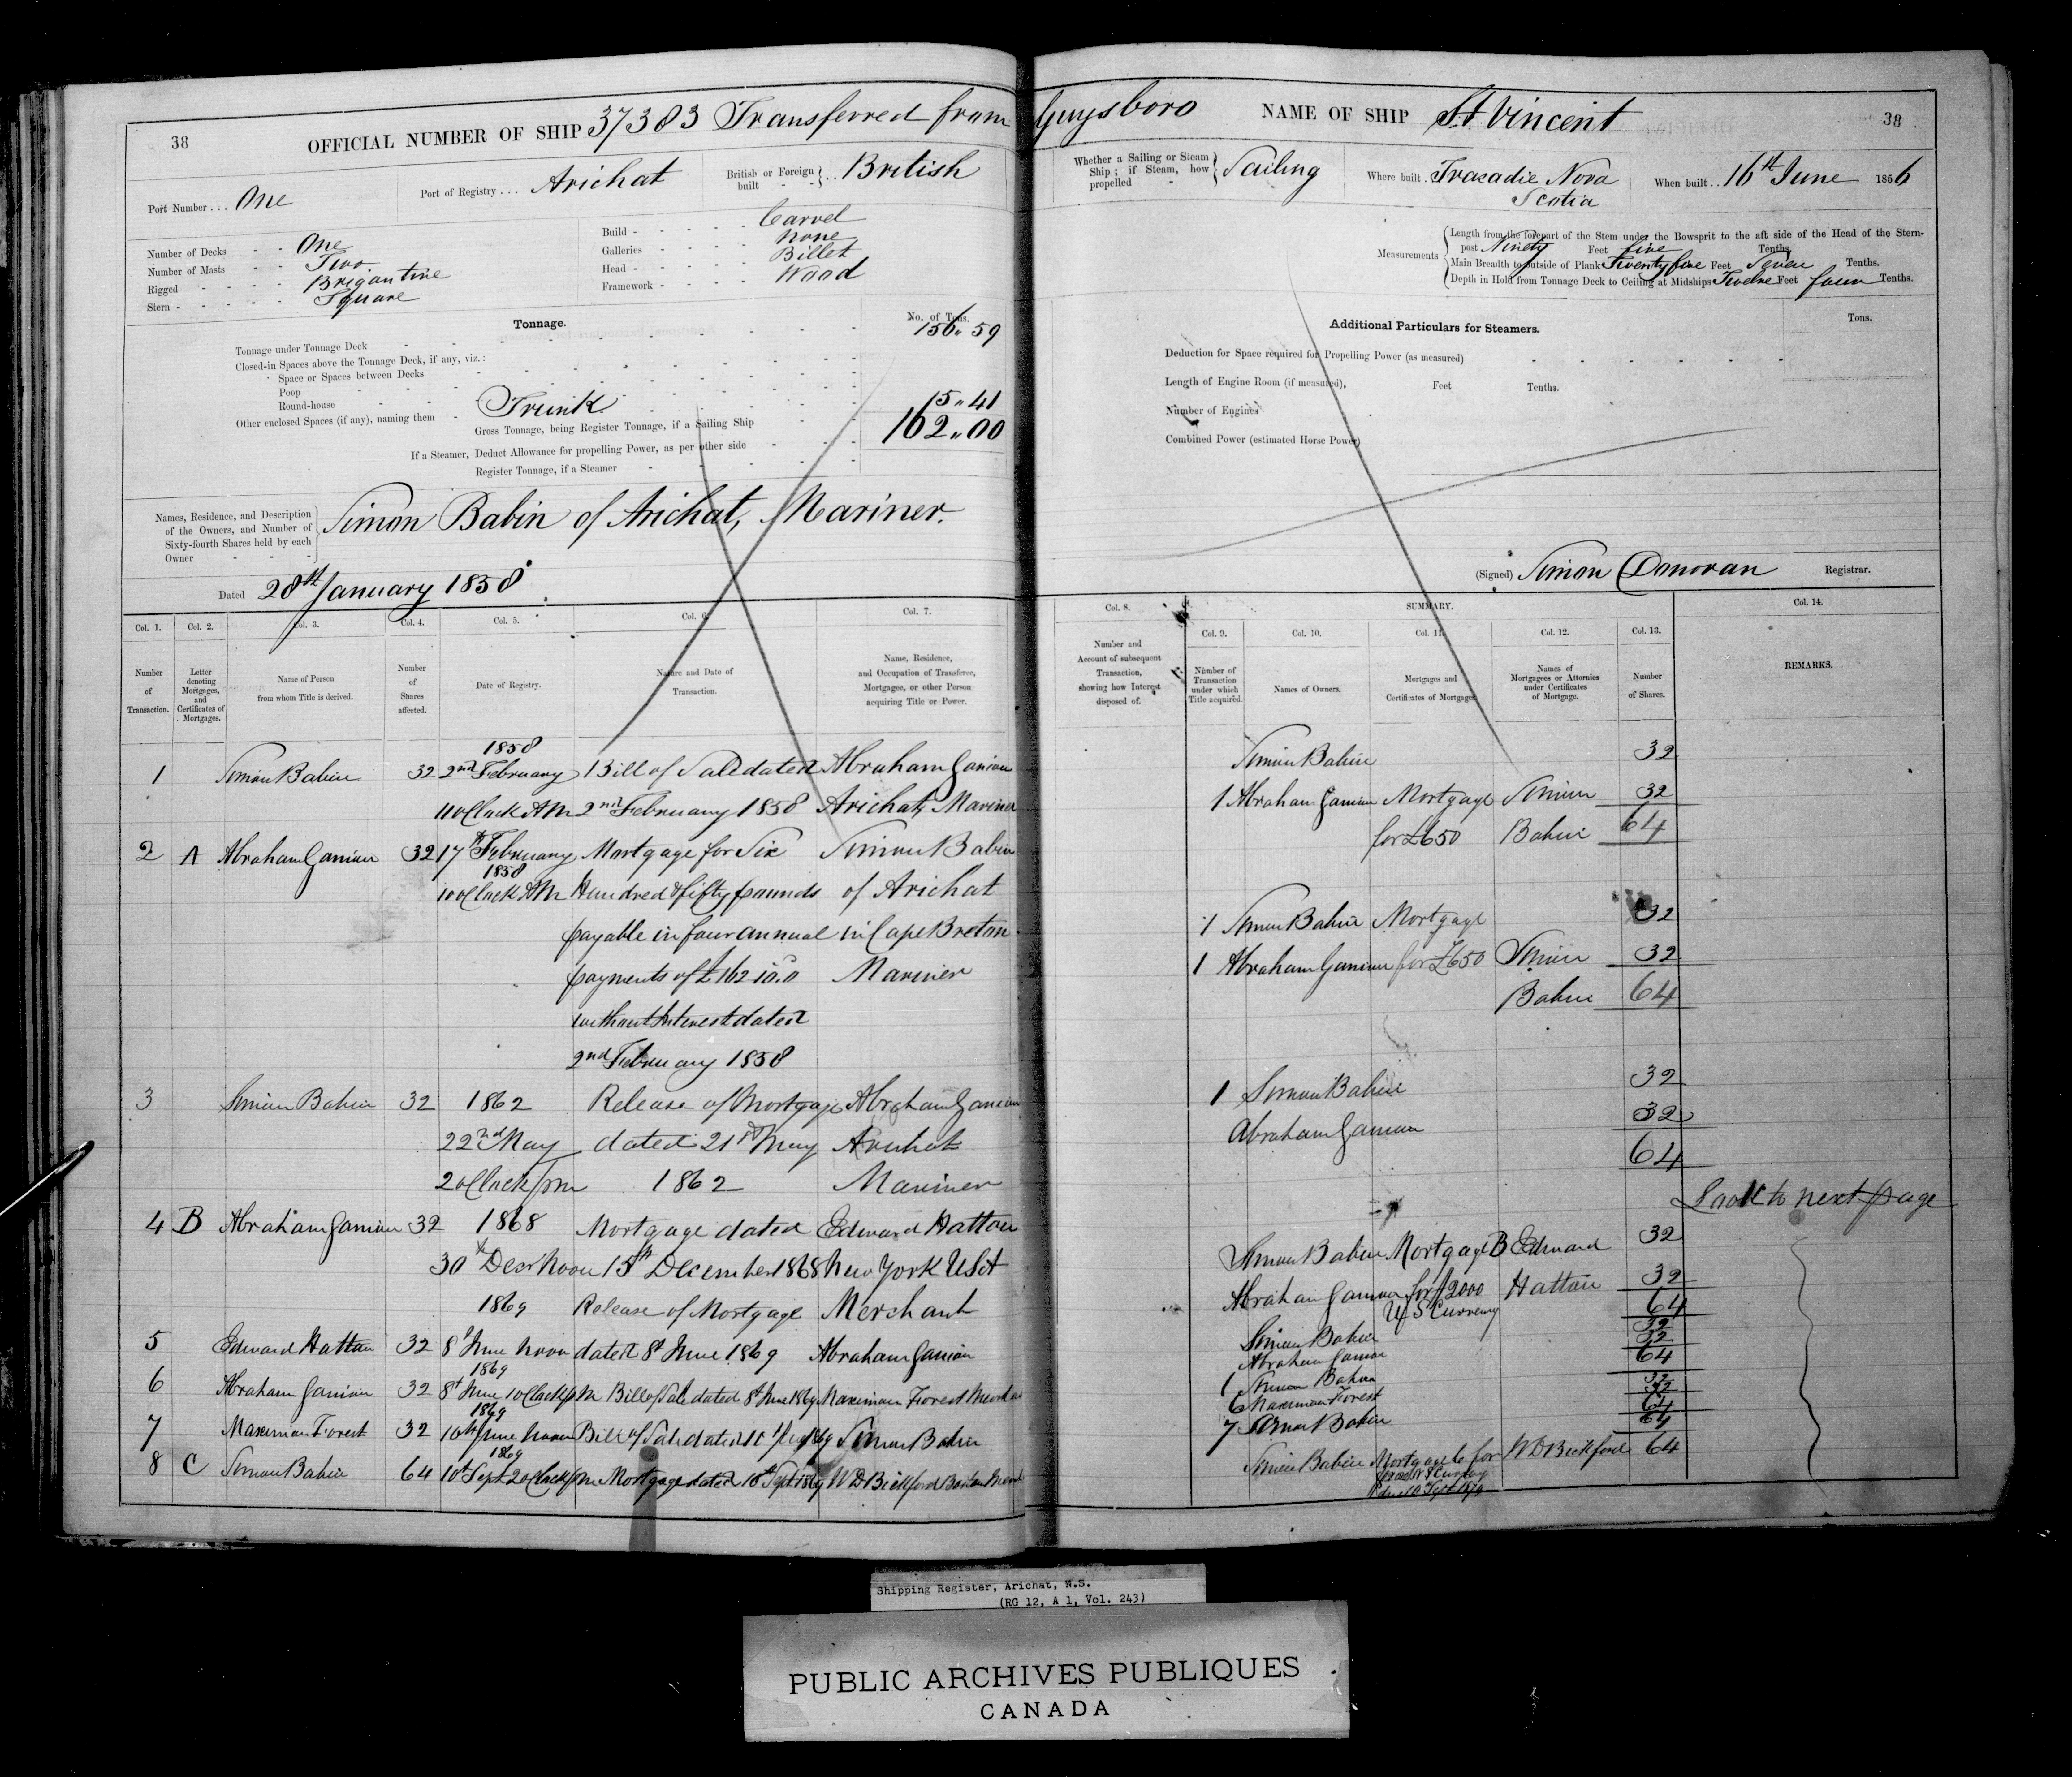 38
OFFICIAL NUMBER OF SHIP 37383 Transferred from Guysboro
NAME OF SHIP St Vincent
38
Port Number . . . One
Port of Registry . . . Arichat
British or Foreign built - - } . . British
Whether a Sailing or Steam Ship ; if Steam, how propelled - } Sailing
Where built . . Tracadie Nova Scotia
When built . . 16th June 1856
Number of Decks - - One
Number of Masts - - Two
Rigged - - - - Brigantine
Stern - - - - - Square
Build - - - - - - Carvel
Galleries - - - - - none
Head - - - - - - Billet
Framework - - - - - Wood
Measurements
Length from the forepart of the Stem under the Bowsprit to the aft side of the Head of the Stern-
post Ninety Feet five Tenths.
Main Breadth to outside of Plank Twenty five Feet Seven Tenths.
Depth in Hold from Tonnage Deck to Ceiling at Midships Twelve Feet four Tenths.
Tonnage.
No. of Tons.
Tonnage under Tonnage Deck 156,, 59
Closed-in Spaces above the Tonnage Deck, if any, viz. :
Space or Spaces between Decks
Poop
Round-house
Other enclosed Spaces (if any), naming them - Trunk 5,, 41
Gross Tonnage, being Register Tonnage, if a Sailing Ship 162,, 00
If a Steamer, Deduct Allowance for propelling Power, as per other side
Register Tonnage, if a Steamer
Additional Particulars for Steamers.
Tons.
Deduction for Space required for Propelling Power (as measured)
Length of Engine Room (if measured), Feet Tenths.
Number of Engines
Combined Power (estimated Horse Power)
Names, Residence, and Description of the Owners, and Number of Sixty-fourth Shares held by each Owner
Simon Babin of Arichat, Mariner.
Dated 28th January 1858
(Signed) Simon Donovan Registrar.
Col. 1. Col. 2. Col. 3. Col. 4. Col. 5. Col. 6. Col. 7.
Number of Transaction.
Letter denoting Mortgages, and Certificates of Mortgages.
Name of Person from whom Title is derived.
Number of Shares affected.
Date of Registry.
Nature and Date of Transaction.
Name, Residence, and Occupation of Transferee, Mortgagee, or other Person acquiring Title or Power.
1858
1 Simon Babin 32 2nd February Bill of Sale dated Abraham Ganion
11 oClock AM 2nd February 1858 Arichat, Mariner
2 A Abraham Ganion 32 17th February Mortgage for Six Simon Babin
1858
10 oClock AM Hundred & fifty pounds of Arichat
payable in four annual in Cape Breton
payments of £162-10.0 Mariner
without Interest dated
2nd February 1858
3 Simon Babin 32 1862 Release of Mortgage Abraham Ganion
22nd May dated 21st May Arichat
2 oClock pm 1862 Mariner
4 B Abraham Ganion 32 1868 Mortgage dated Edward Hatton
30th Decr Noon 15th December 1868 New York USA
1869 Release of Mortgage Merchant
5 Edward Hatton 32 8th June noon dated 8th June 1869 Abraham Ganion
1869
6 Abraham Ganion 32 8th June 1 oClock pm Bill of Sale dated 8th June 1869 Maximian Forest
1869
7 Maximian Forest 32 10th June noon Bill of Sale dated Simon Babin
1869
8 C Simon Babin 64 10th Sept 2 oClock pm Mortgage dated 10th Sept 1869 W D Bickford Boston
Col. 8.
SUMMARY.
Col. 9. Col. 10. Col. 11. Col. 12. Col. 13. Col. 14.
Number and Account of subsequent Transaction, showing how Interest disposed of.
Number of Transaction under which Title acquired.
Names of Owners.
Mortgages and Certificates of Mortgage.
Names of Mortgagees or Attornies under Certificates of Mortgage.
Number of Shares.
REMARKS.
Simon Babin 32
1 Abraham Ganion Mortgage Simon 32
for £650 Babin 64
1 Simon Babin Mortgage 32
1 Abraham Ganion for £650 Simon 32
Babin 64
1 Simon Babin 32
Abraham Ganion 32
64
Look to next page
Simon Babin Mortgage B Edward 32
Abraham Ganion for $2000 Hatton 32
U S Currency 64
Simon Babin 32
Abraham Ganion 32
64
1 Simon Babin 32
6 Maximian Forest 32
64
7 Simon Babin 64
Simon Babin Mortgage C for W D Bickford 64
Shipping Register, Arichat, N.S.
(RG 12, A 1, Vol. 243)
PUBLIC ARCHIVES PUBLIQUES
CANADA